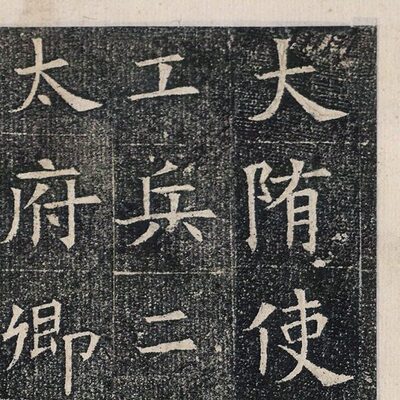 大隋使
工兵二
太府卿